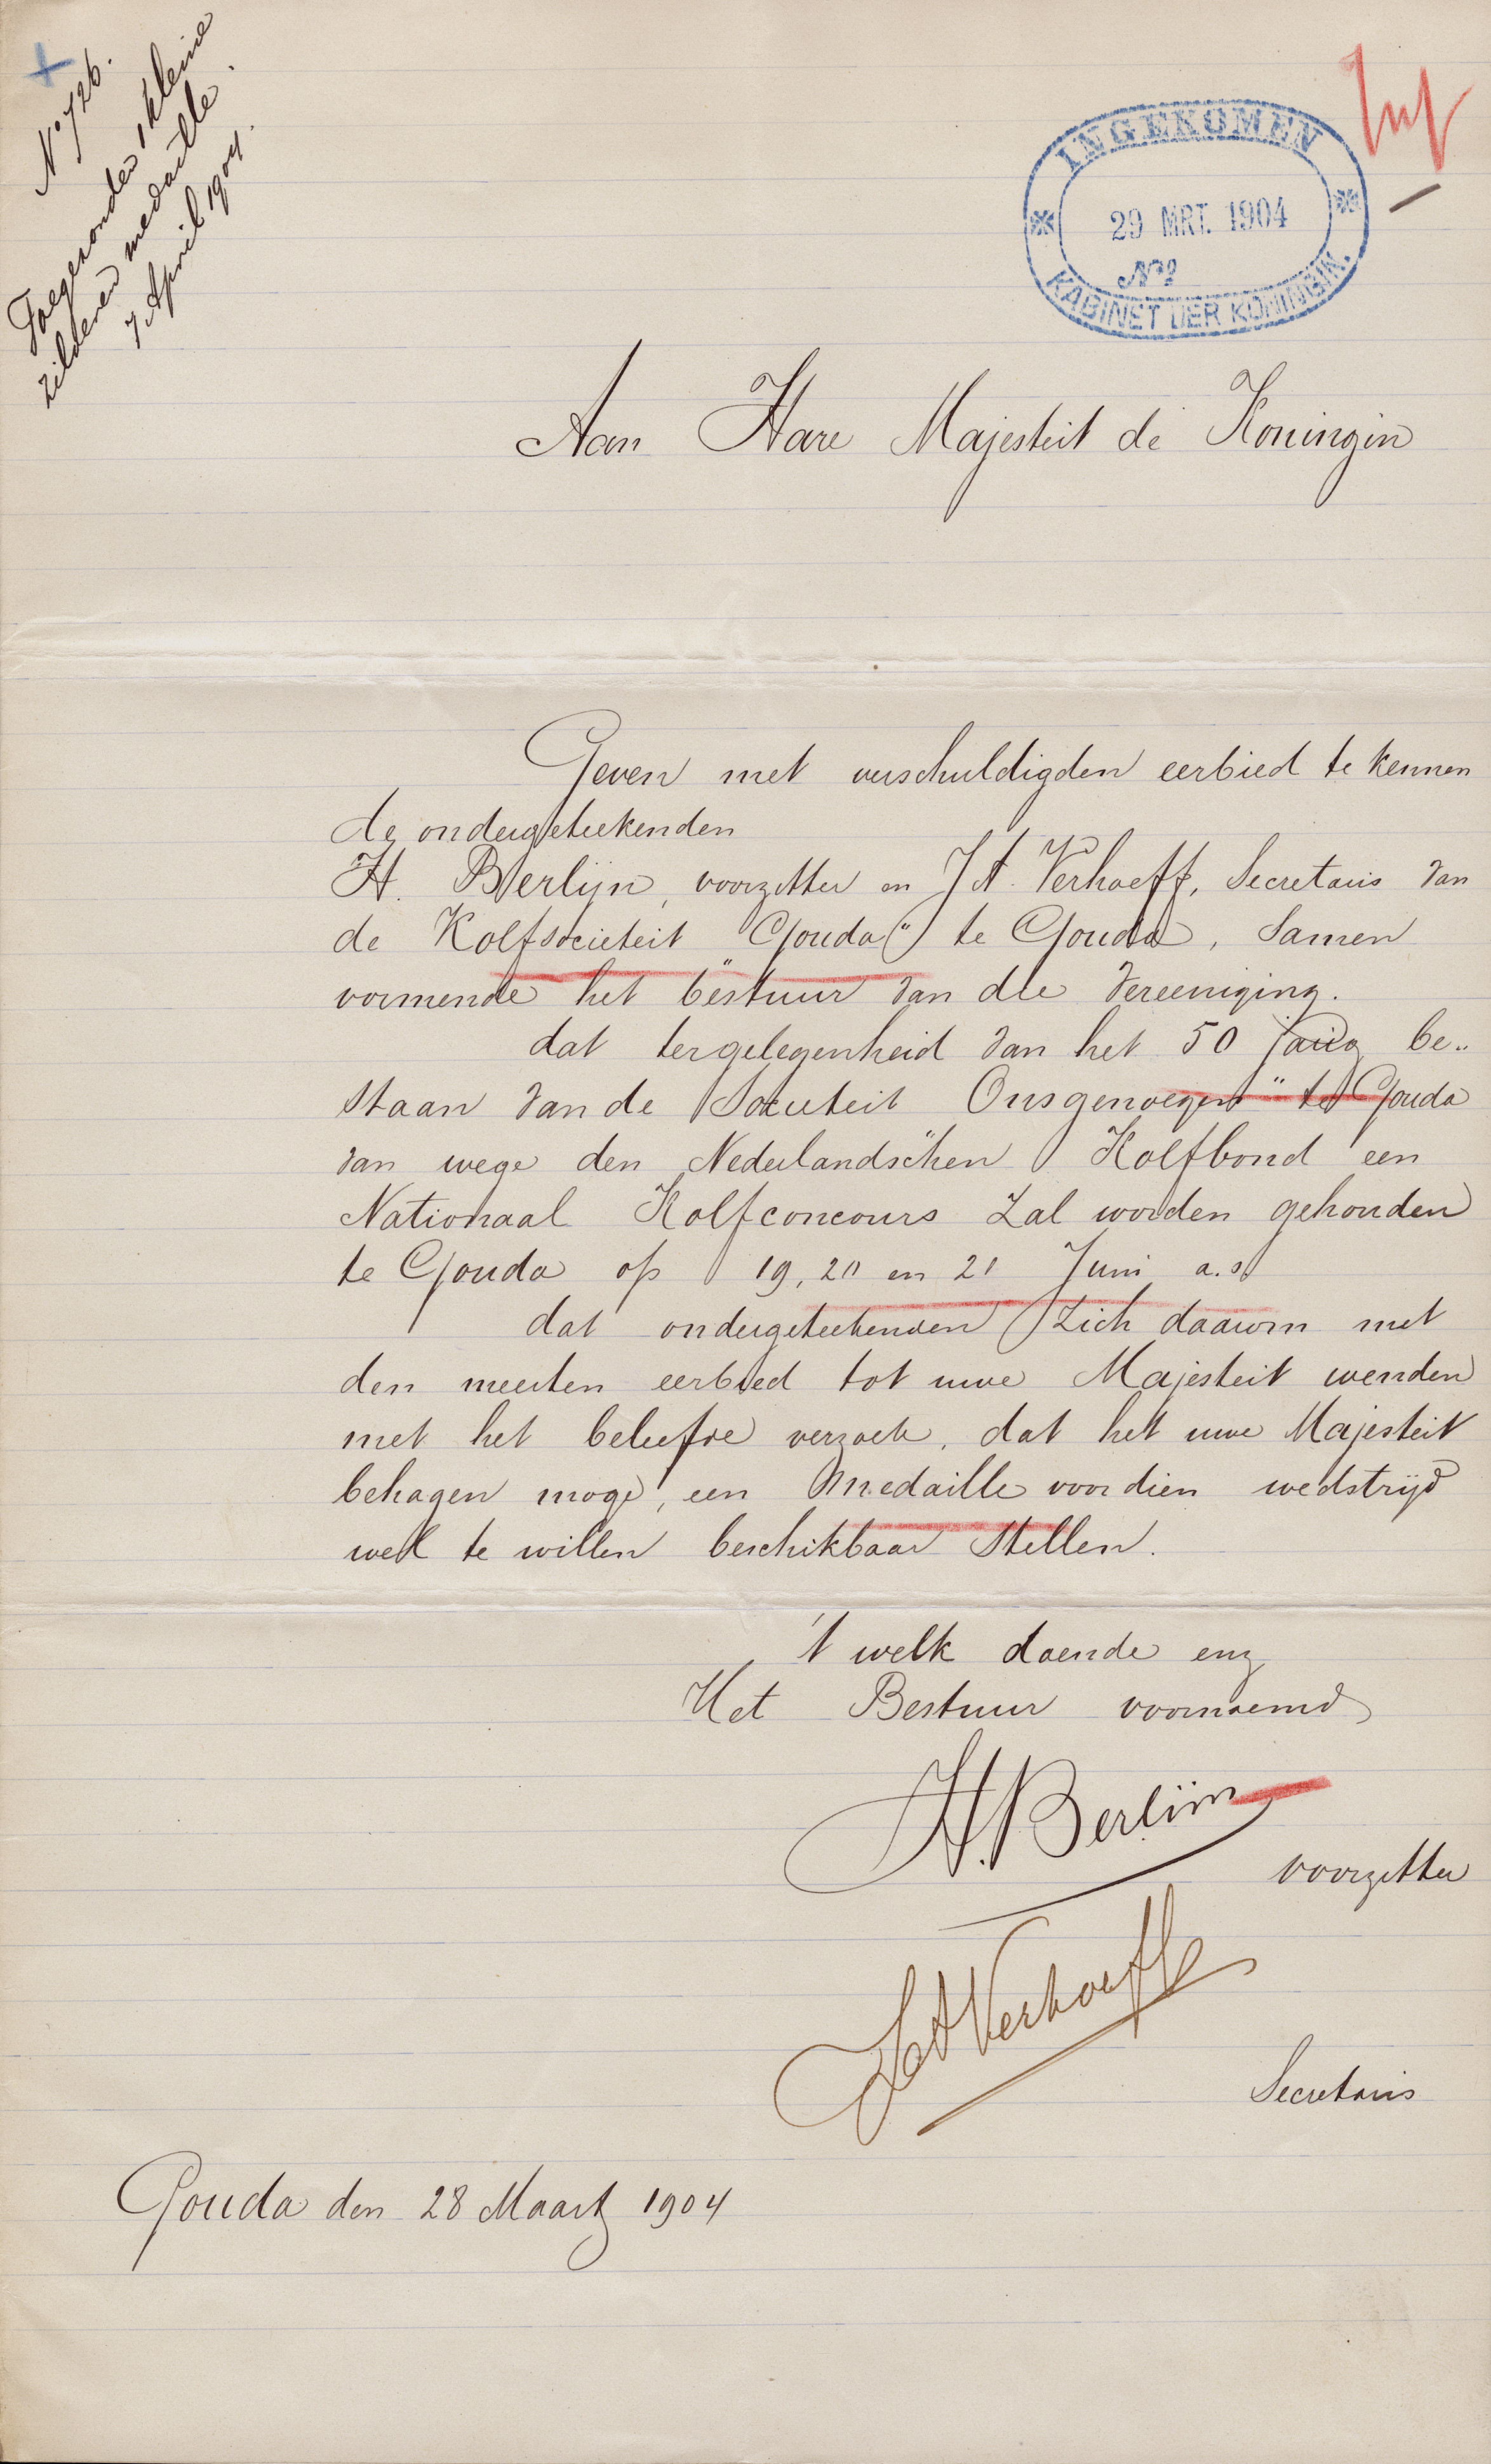 No 726.
Toegezonden 1 kleine
zilveren medaille.
7 April 1904.
INGEKOMEN
29 MRT. 1904
No
KABINET DER KONINGIN.
Aan Hare Majesteit de Koningin
Geven met verschuldigden eerbied te kennen
de ondergeteekenden
H. Berlijn, voorzitter en J A. Verhoeff, Secretaris van
de Kolfsocieteit "Gouda" te Gouda, Samen
vormende het bestuur van die Vereeniging.
dat tergelegenheid van het 50 jarig be„
staan van de Societeit "Onsgenoegen" te Gouda
van wege den Nederlandschen Kolfbond een
Nationaal Kolfconcours zal worden gehouden
te Gouda op 19, 20 en 21 Juni a.s.
dat ondergeteekenden zich daarom met
den meesten eerbied tot uwe Majesteit wenden
met het beleefde verzoek, dat het uwe Majesteit
behagen moge, een medaille voor dien wedstrijd
wel te willen beschikbaar stellen.
't welk doende enz
Het Bestuur voornoemd
H. Berlijn
voorzitter
J A Verhoeff
Secretaris
Gouda den 28 Maart 1904